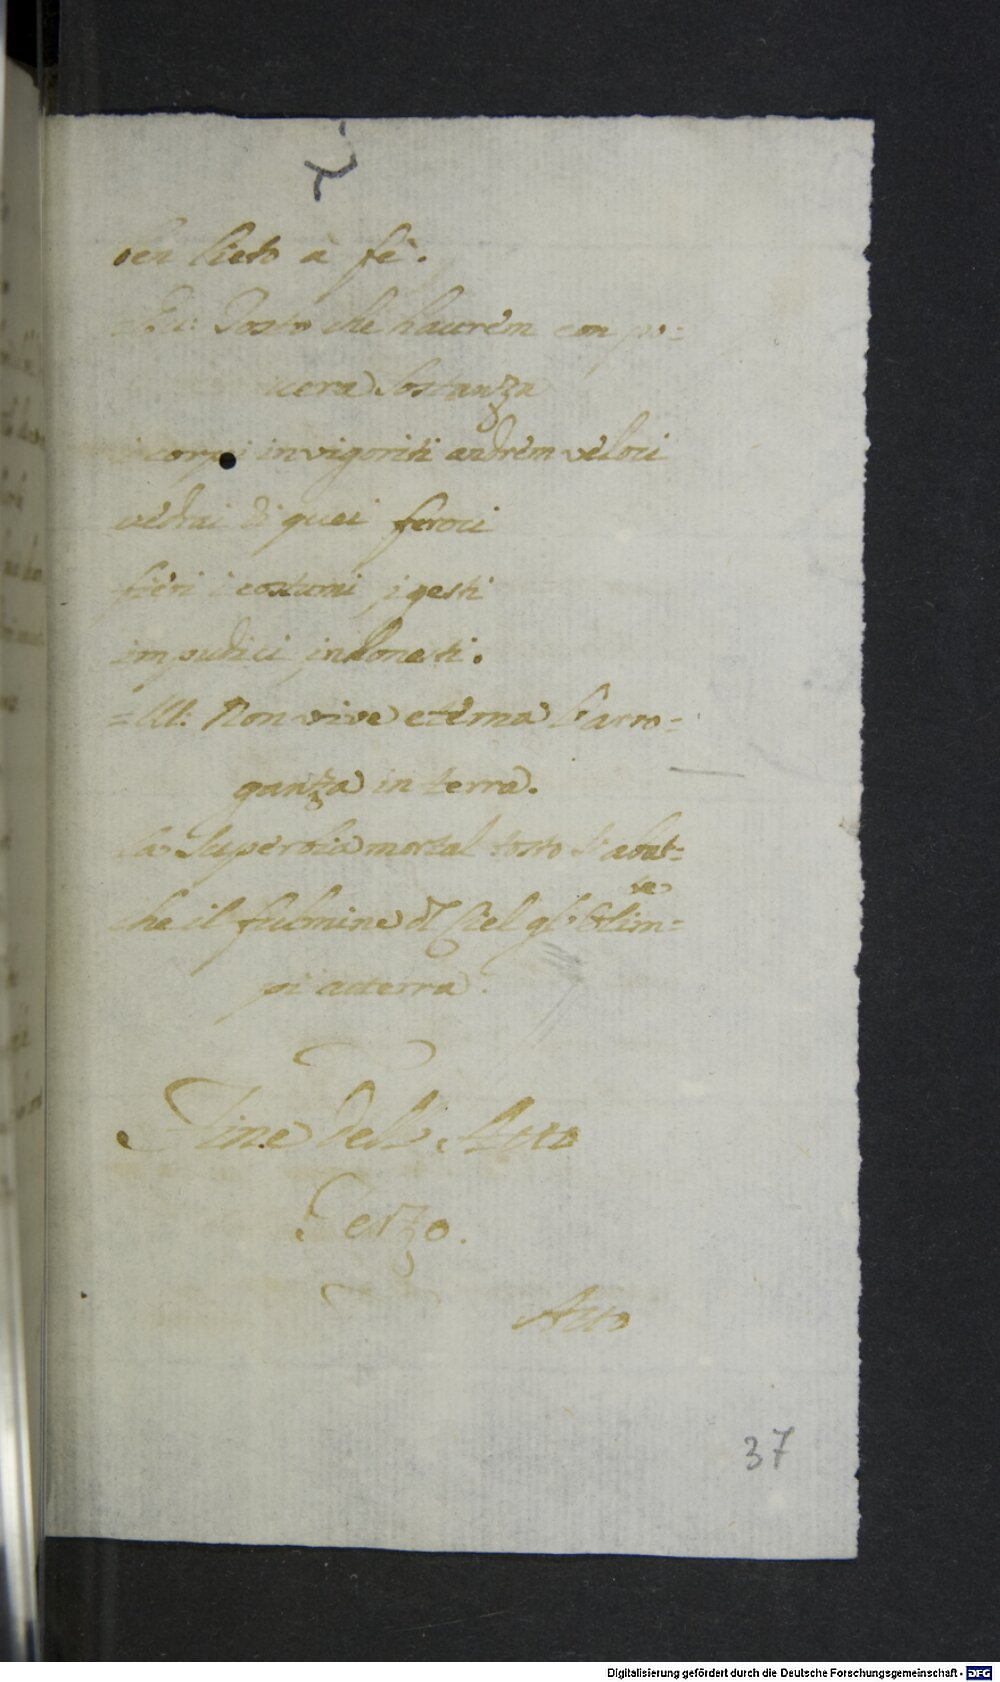 ben lieto à fè.
=Eu: Tosto che haurem con po=
uera Sostanza
i corpi invigoriti andrem veloci
vedrai di quei feroci
fieri i costumi, i gesti
impudici, inhonesti.
=Ul: Non vive eterna l'arro=
ganza in terra.
la Superbia mortal tosto s'abat=
te
che il fulmine del Ciel gl'Olim=
pi atterra.
Fine dell'Atto
Terzo.
Atto
37
Digitalisierung gefördert durch die Deutsche Forschungsgemeinschaft - DFG